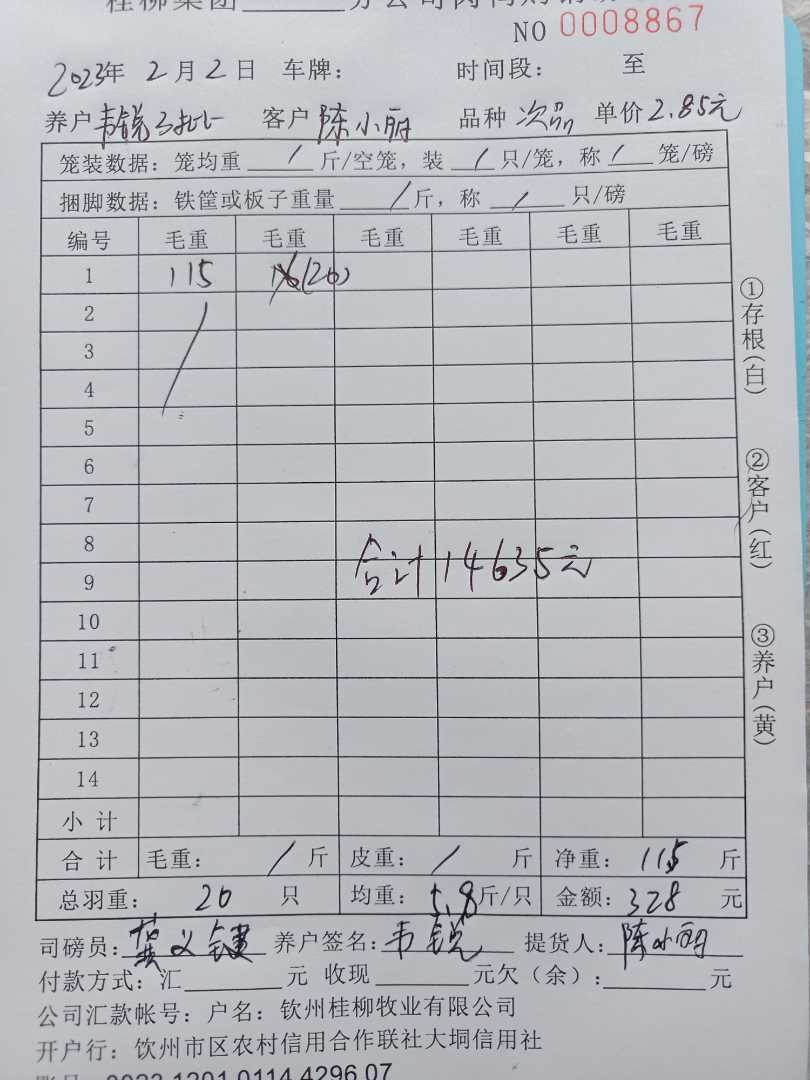 桂柳集团
NO 0008867
2023年 2月2日 车牌： 时间段： 至
养户 韦锐 客户 陈小丽 品种 次品 单价 2.85元
笼装数据：笼均重 / 斤/空笼，装 / 只/笼，称 / 笼/磅
捆脚数据：铁筐或板子重量 / 斤，称 / 只/磅
编号 毛重 毛重 毛重 毛重 毛重 毛重
1 115 (20)
2
3
4
5
6
7
8
合计14635元
9
10
11
12
13
14
小计
合计 毛重： / 斤 皮重： / 斤 净重： 115 斤
总羽重： 20 只 均重： 5.8 斤/只 金额：328 元
司磅员： 义键 养户签名：韦锐 提货人：陈小丽
付款方式：汇 元 收现 元欠（余）： 元
公司汇款帐号：户名：钦州桂柳牧业有限公司
开户行：钦州市区农村信用合作联社大垌信用社
①存根（白）
②客户（红）
③养户（黄）